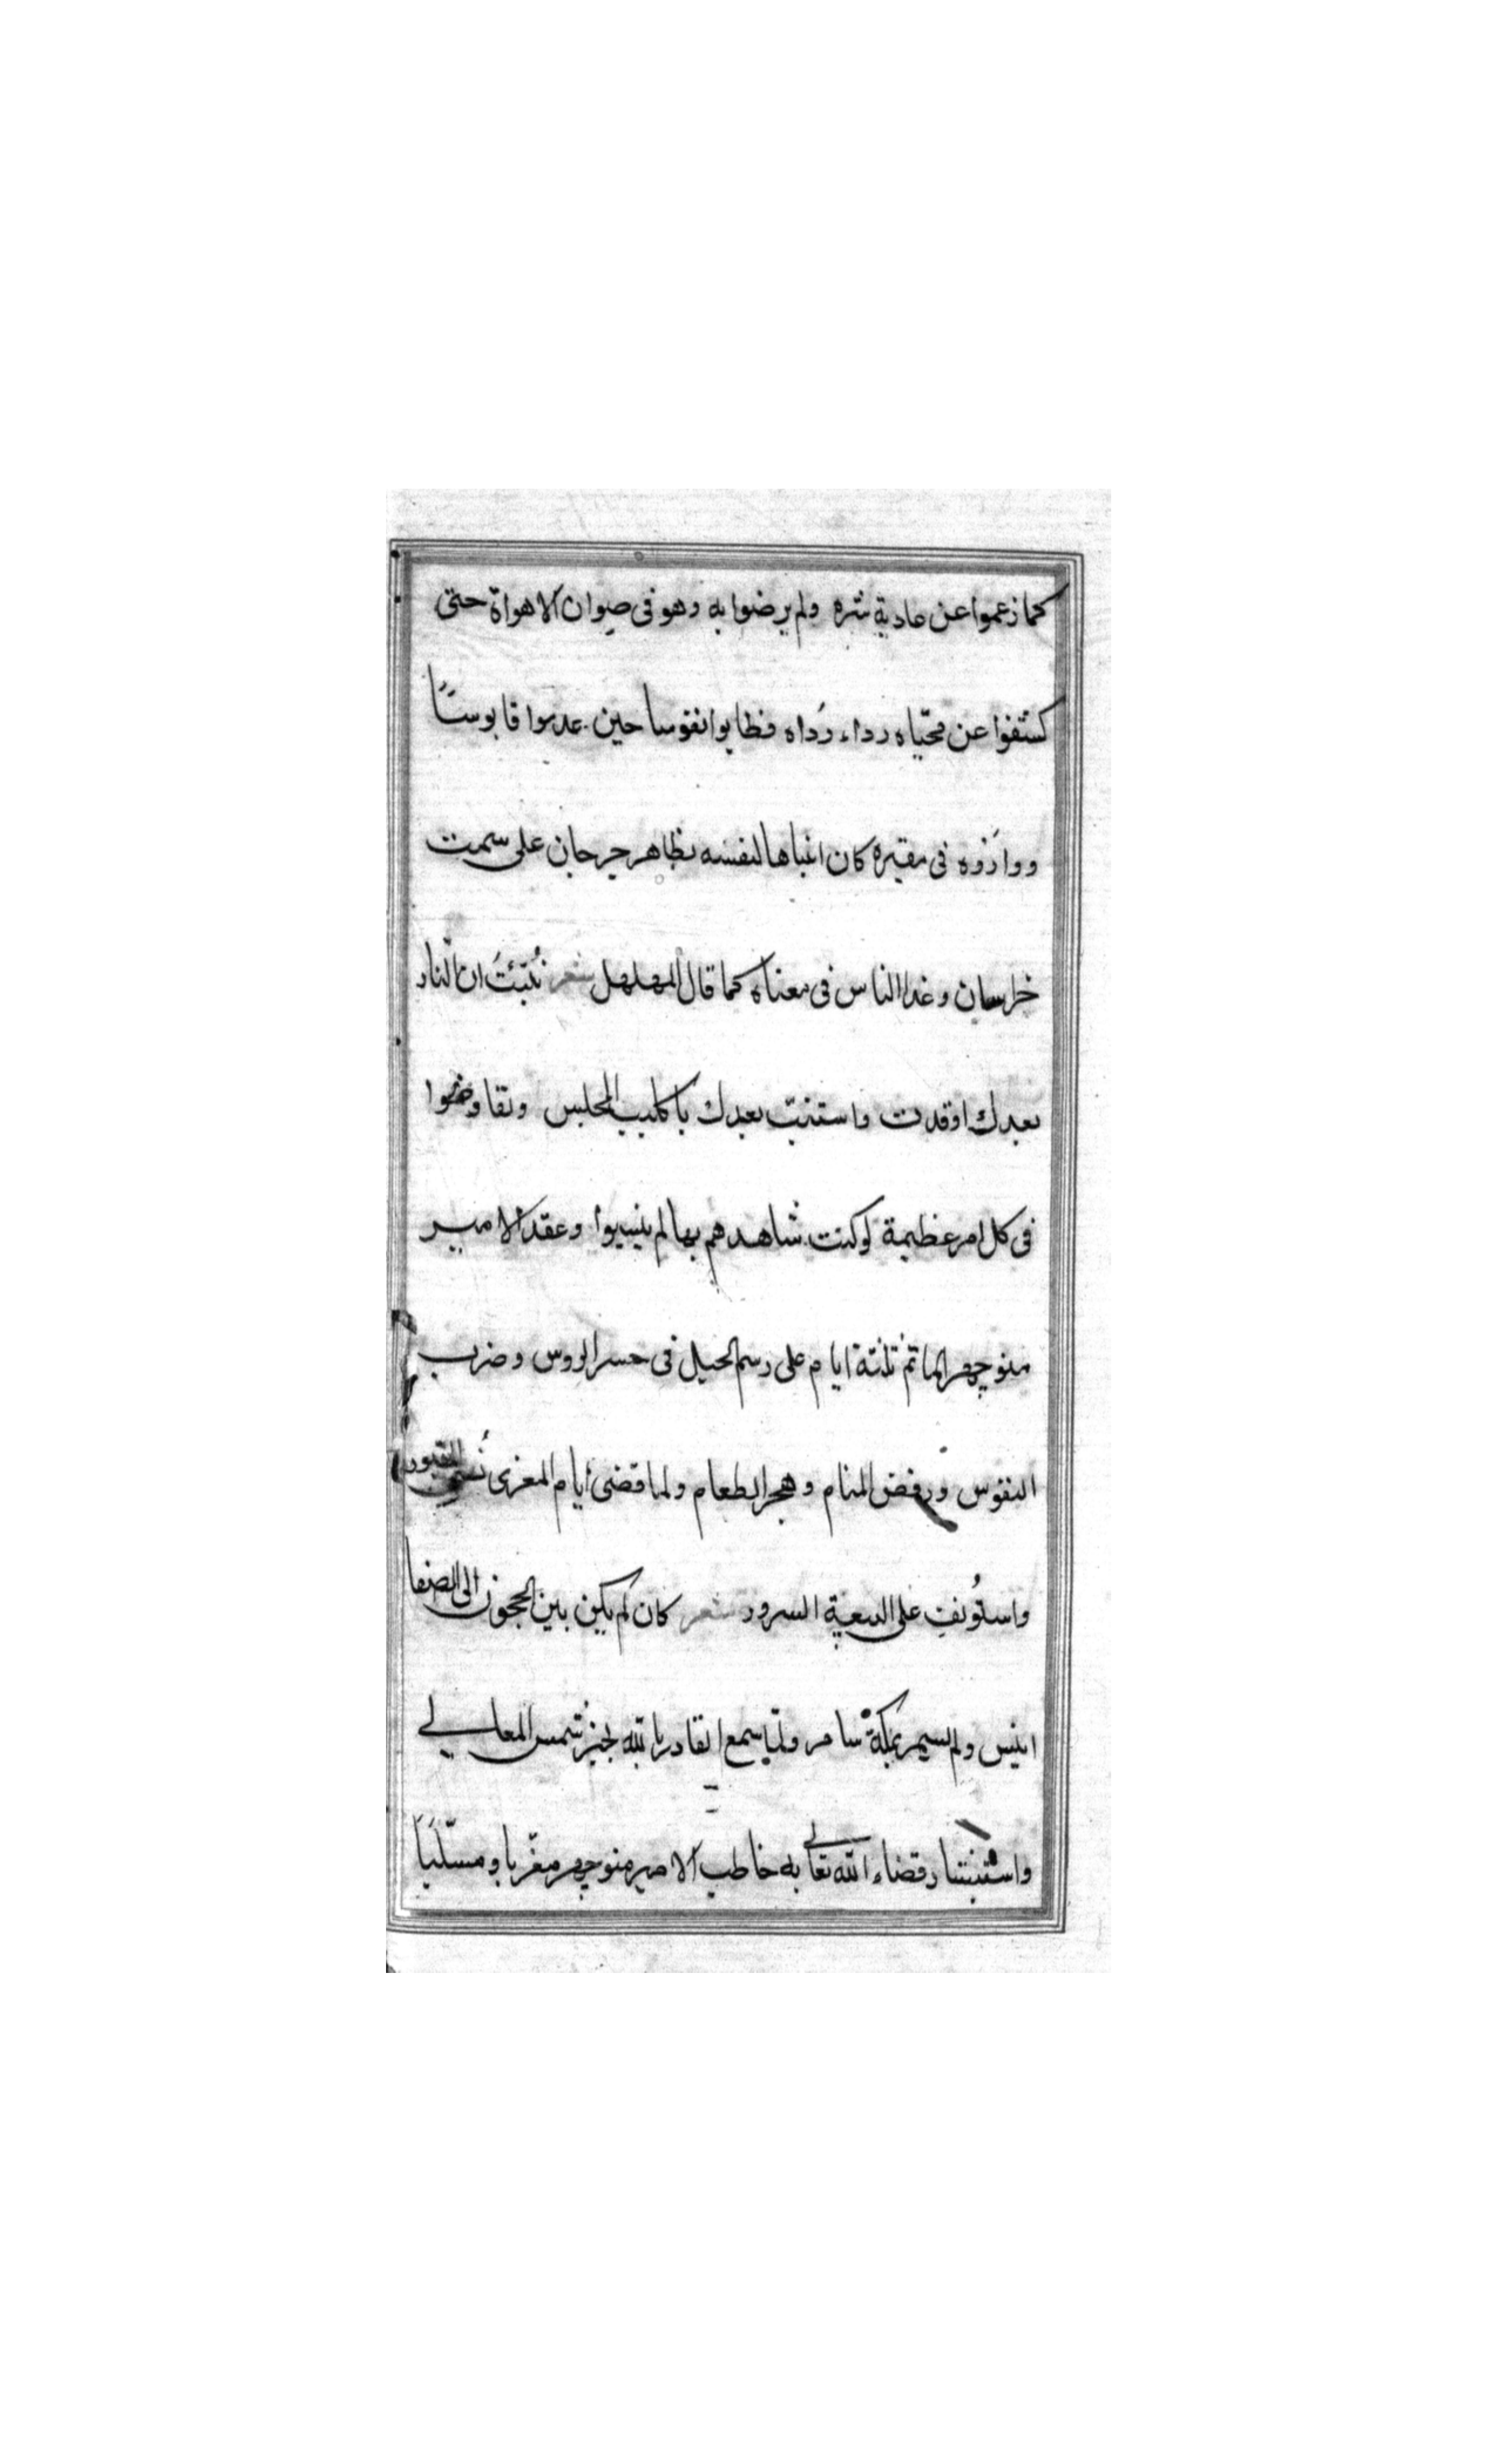 كما زعموا عن عادية شره ولم يرضوا به وهو فى صوان الاهواة حتى
كشفوا عن محيّاه رداء رُداه فطابوا نفوسا حين عدموا قابوسًا
ووارَوه فى مقبرة كان ابتناها لنفسه بظاهر جرجان على سمت
خراسان وغدا الناس فى معناه كما قال المهلهل شعر نُبّئتُ ان النار
بعدك اوقدت واستبّ بعدك يا كليب المجلس وتفاوضوا
فى كل امر عظيمة لو كنت شاهدهم بها لم ينبسوا وعقد الامير
منوچهر الماتم ثلثة ايام على رسم الجيل فى حسر الروس وضرب
النفوس ورفض المنام وهجر الطعام ولما قضى أيام المعزى نُسى المقبور
واستُونف على البيعة السرور شعر كان لم يكن بين الحجون الى الصفا
انيس ولم يسمر بمكة سامر ولمّا سمع القادر بالله بخبر شمس المعالي
واستيثار قضاء الله تعالى به خاطب الامير منوچهر معزيا ومسلّيًا